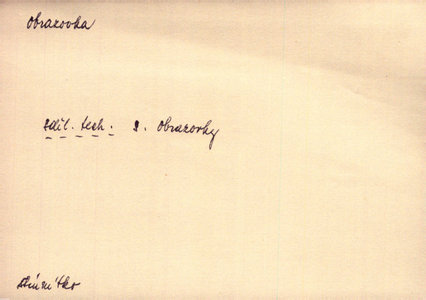 Obrazovka
sděl. tech. : s. obrazovky
stínítko